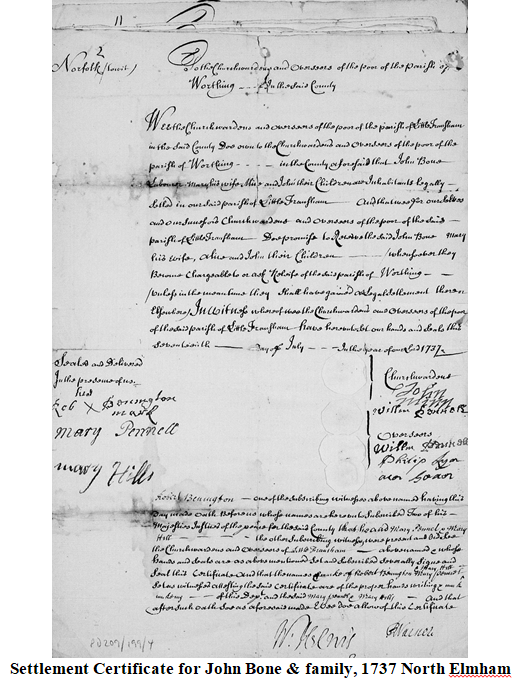 11
2
Norfolk (towit)
To the Churchwardens and Overseers of the poor of the Parish of
Worthing In the said County
Wee the Churchwardens and overseers of the poor of the parish of Little Fransham
in the said County Doe own to the Churchwardens and overseers of the poor of the
parish of Worthing in the County aforesaid that John Bone
Labourer Mary his wife Alice and John their Children are Inhabitants legally
settled in our said parish of Little Fransham And that wee for our selves
and our successors Churchwardens and overseers of the poor of the said
parish of Little Fransham Doe promise to Receive the said John Bone Mary
his wife, Alice and John their Children whensoever they
Become Chargeable to or ask Reliefe of the said parish of Worthing
Unless in the meantime they shall have gained a Legal settlement therein
Elsewhere, In witness whereof wee the Churchwardens and overseers of the poor
of the said parish of Little Fransham have hereunto set our hands and seals this
seventeenth Day of July In the year of our Lord 1737
Sealed and Delivered
In the presence of us
his
Rob X Benington
mark
Mary Pennell
Mary Hills
Churchwardens
John
Willm
Overseers
Willm
Philip
Robert Benington one of the subscribing witnesses abovenamed having this
Day made oath Before us whose names are hereunto subscribed Two of his
Majesties Justices of the peace for the said County that he and Mary Pennel & Mary
Hill the other subscribing witnesses were present and did see
the Churchwardens and overseers of Little Fransham abovenamed whose
hands and seals are as above mentioned set and subscribed severally signe and
seal this Certificate And that the names & marke of Robert Benington Mary Hill & Mary Pennel
witnesses attesting the said Certificate are of the proper hands writing & mark
making of this Depo and the said Mary Pennel & Mary Hills And that
after such oath soe as aforesaid made Wee Doe allow of this Certificate
PD209/199/4
Settlement Certificate for John Bone & family, 1737 North Elmham